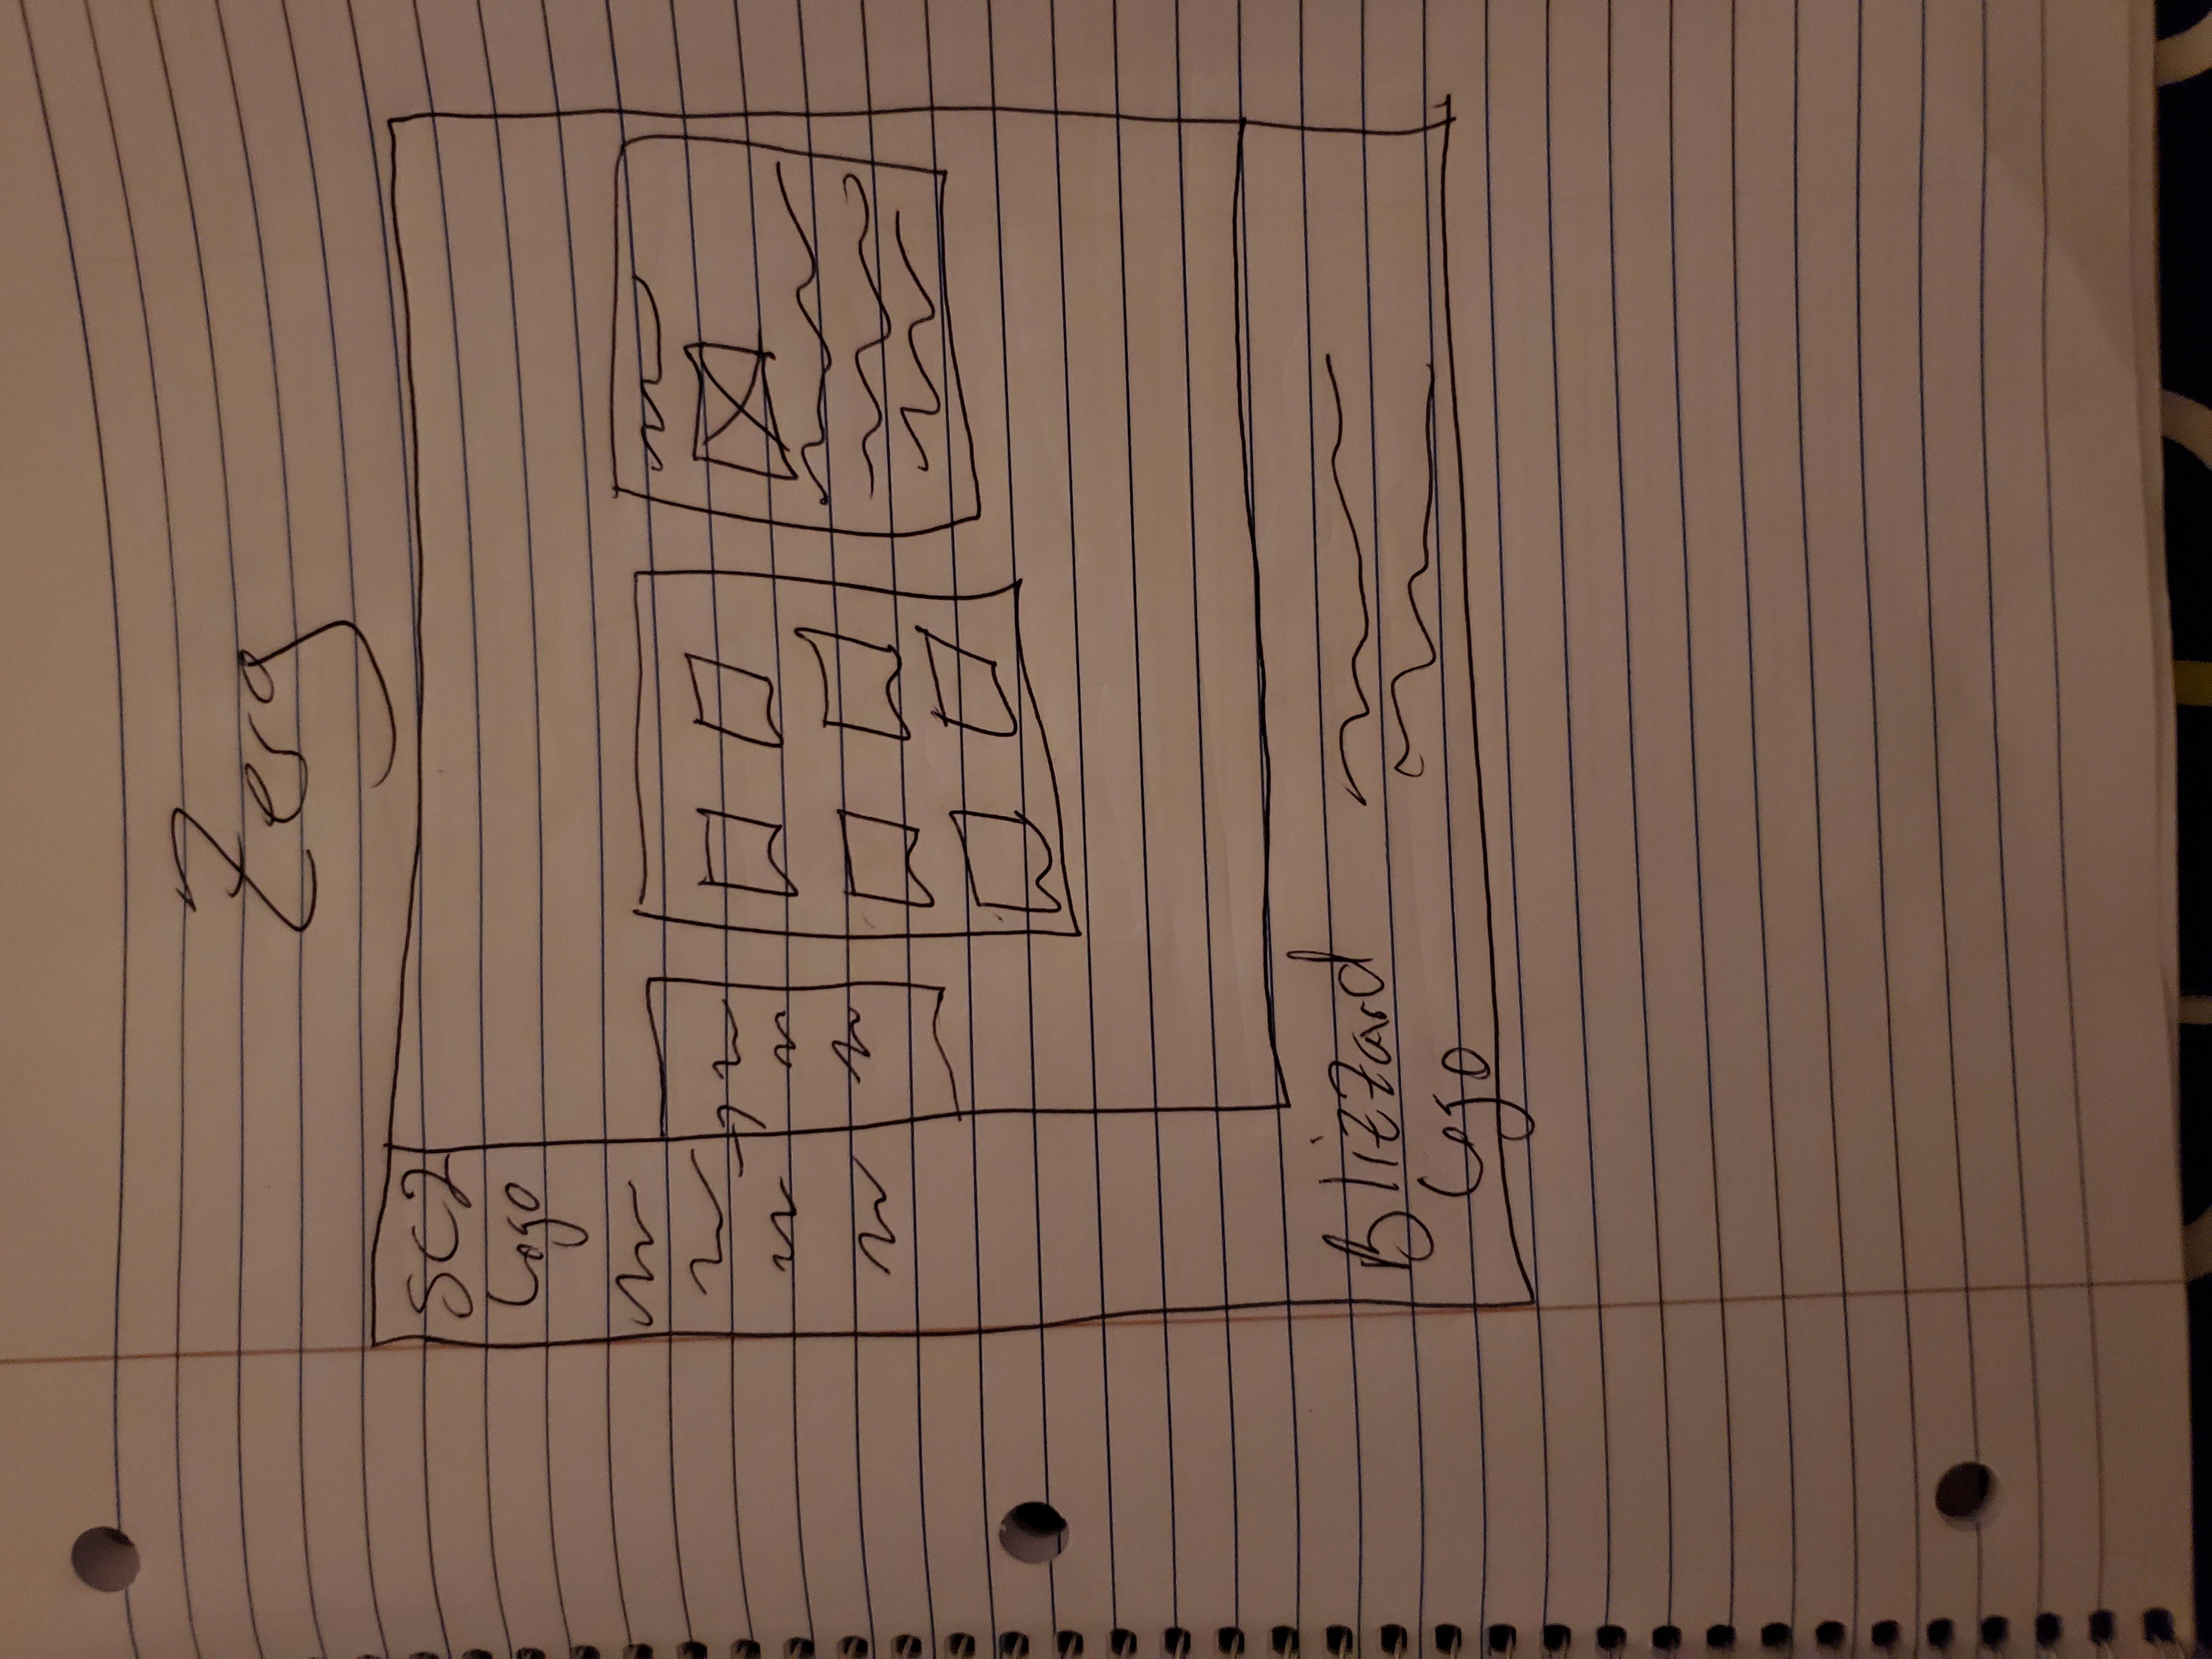 Zerg
SC2
Logo
Blizzard
Logo